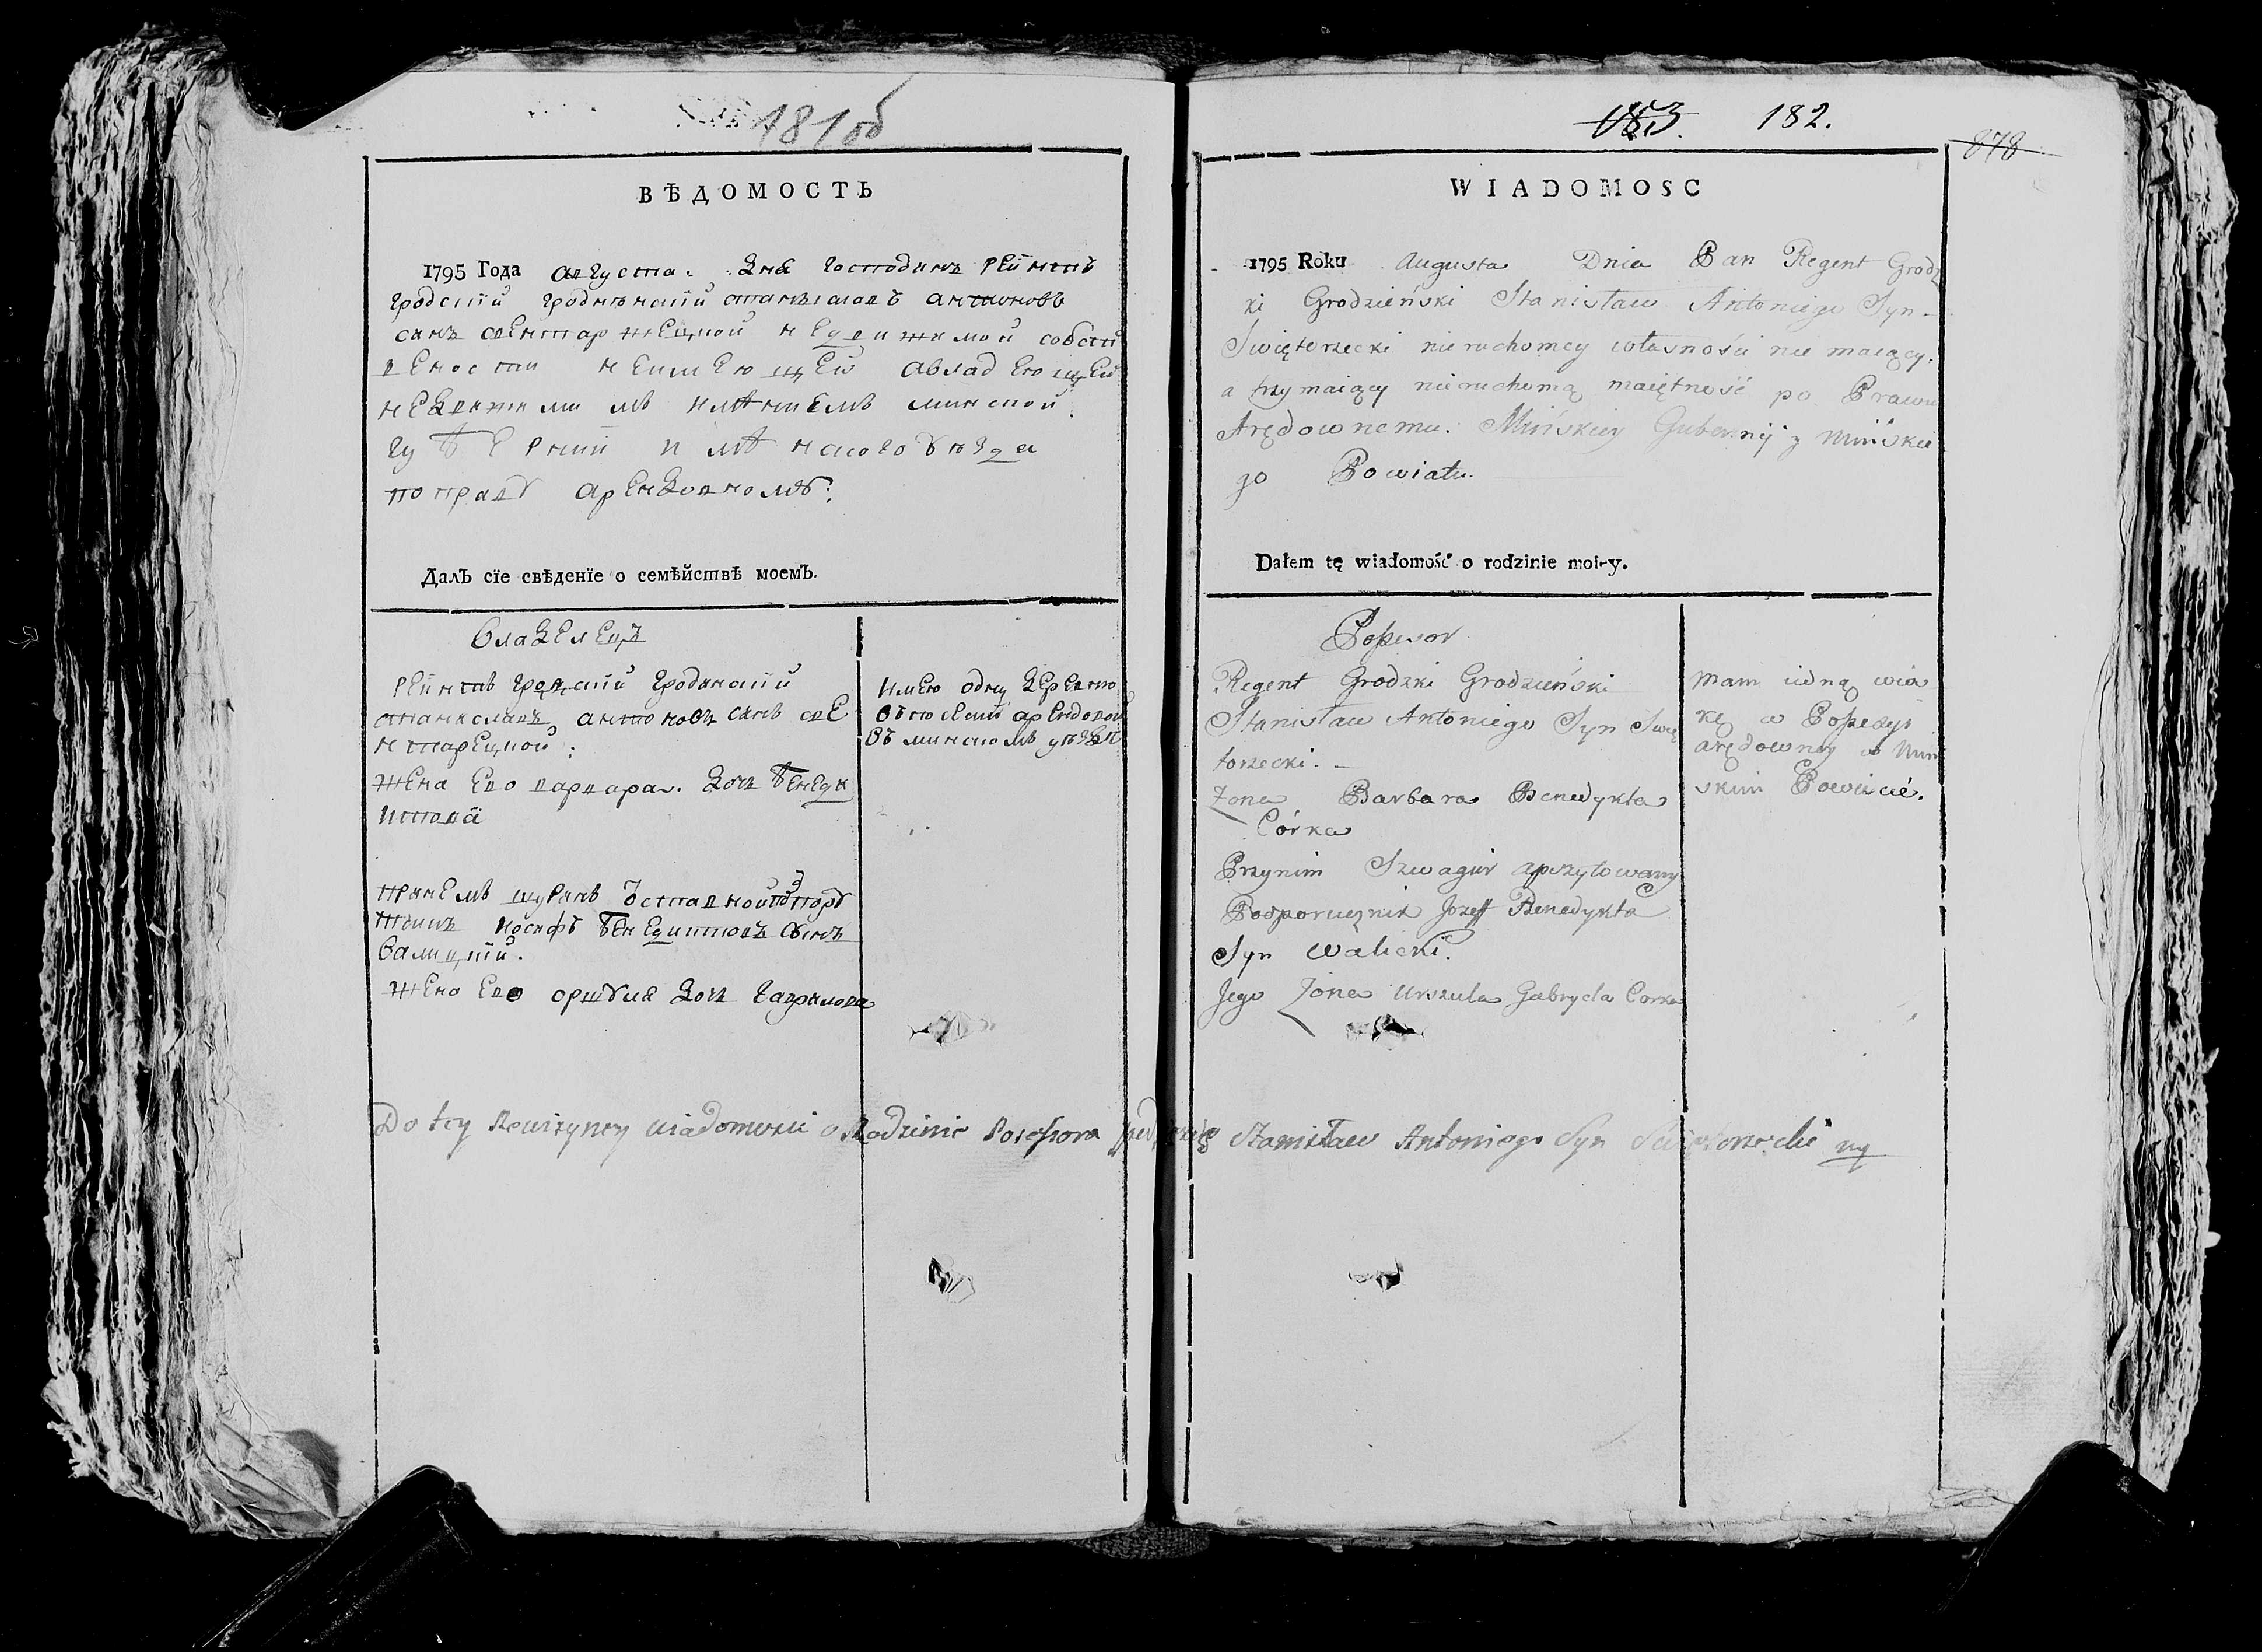 181 об
ВѢДОМОСТЬ
1795 Года августа: дня господинъ рейнтъ
гродскій гроднѣнскій станиславъ антоновъ
синъ свентаржецкой недвижимой собст
веност неимеющей авладеющей
недвижими мъ имѣниемъ минской
губерний и мѣнского уезда
по праву арендовномъ:
ДалЪ сїе свѣденїе о семѣйствѣ моемЪ.
владелецъ
рейнтъ гродскій гроднскій
станиславъ антоновъ синъ све
нтарецкой:
жена ево варвара. дочь бенеди
иктова
принемъ шуринъ
иосифъ бенедиктовъ синъ
валицкій.
жена ево оршуля дочь гаврилова
имею одну деревню
въ посесии арендовой
въ минскомъ уезде
183. 182.
878
WIADOMOSC
1795 Roku Augusta Dnia Pan Regent Grodz
ki Grodzieński Stanisław Antoniego Syn
Swiętorzecki nieruchomey własności nie maiący.
a trzymaiący nieruchomą maiętność po Prawu
Arędownemu. Mińskiey Gubernij y Mińskie
go Powiatu.
Dałem tę wiadomość o rodzinie moiey.
Possesor
Regent Grodzki Grodzieński
Stanisław Antoniego Syn Swię
torzecki. —
Żona Barbara Benedykta
Córka
Przynim Szwagier apszytowany
Podporucznik Jozeff Benedykta
Syn Walicki.
Jego Żona Urszula Gabryela Corka
Mam iedną wio
kę w Possesyi
arędowney w Miń
skim Powiecie.
Do tey Rewizyney wiadomosci o Rodzinie Posessora Stanisław Antoniego Syn Swiętorzecki